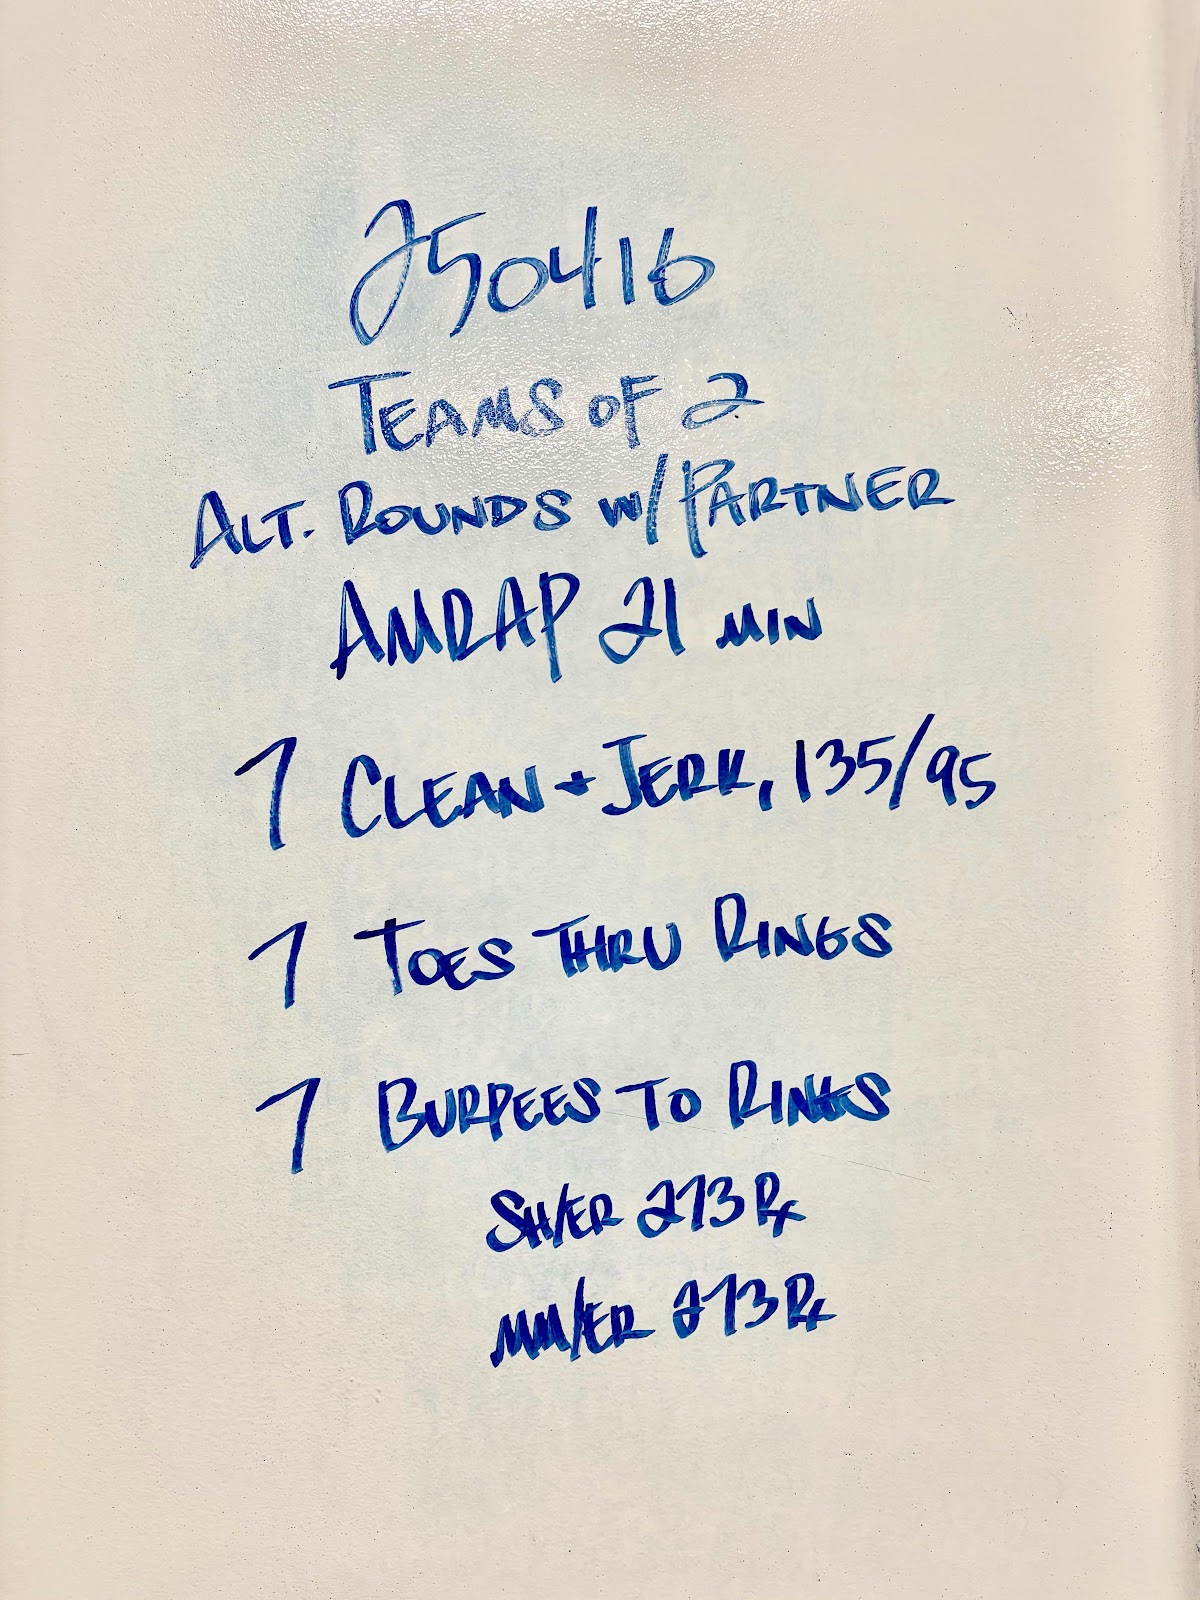 250416
TEAMS OF 2
ALT. ROUNDS W/PARTNER
AMRAP 21 MIN
7 CLEAN + JERK, 135/95
7 TOES THRU RINGS
7 BURPEES TO RINGS
SH/ER 273 Rx
MM/ER 273 Rx